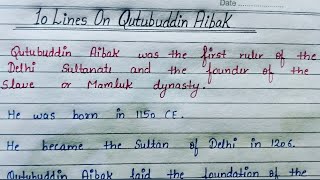 Date
10 Lines On Qutubuddin Aibak
Qutubuddin Aibak was the first ruler of the
Delhi Sultanate and the founder of the
Slave or Mamluk dynasty.
He was born in 1150 CE.
He became the Sultan of Delhi in 1206.
Qutubuddin Aibak laid the foundation of the